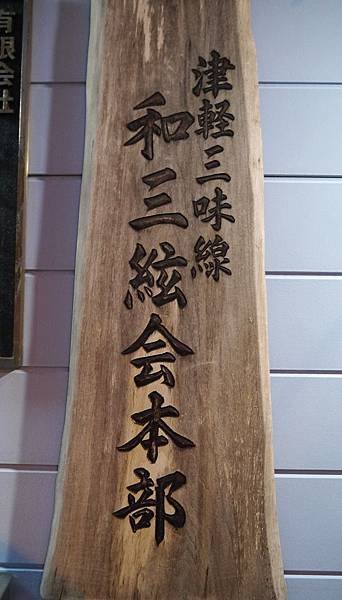 津軽三味線
和三絃会本部
有限会社